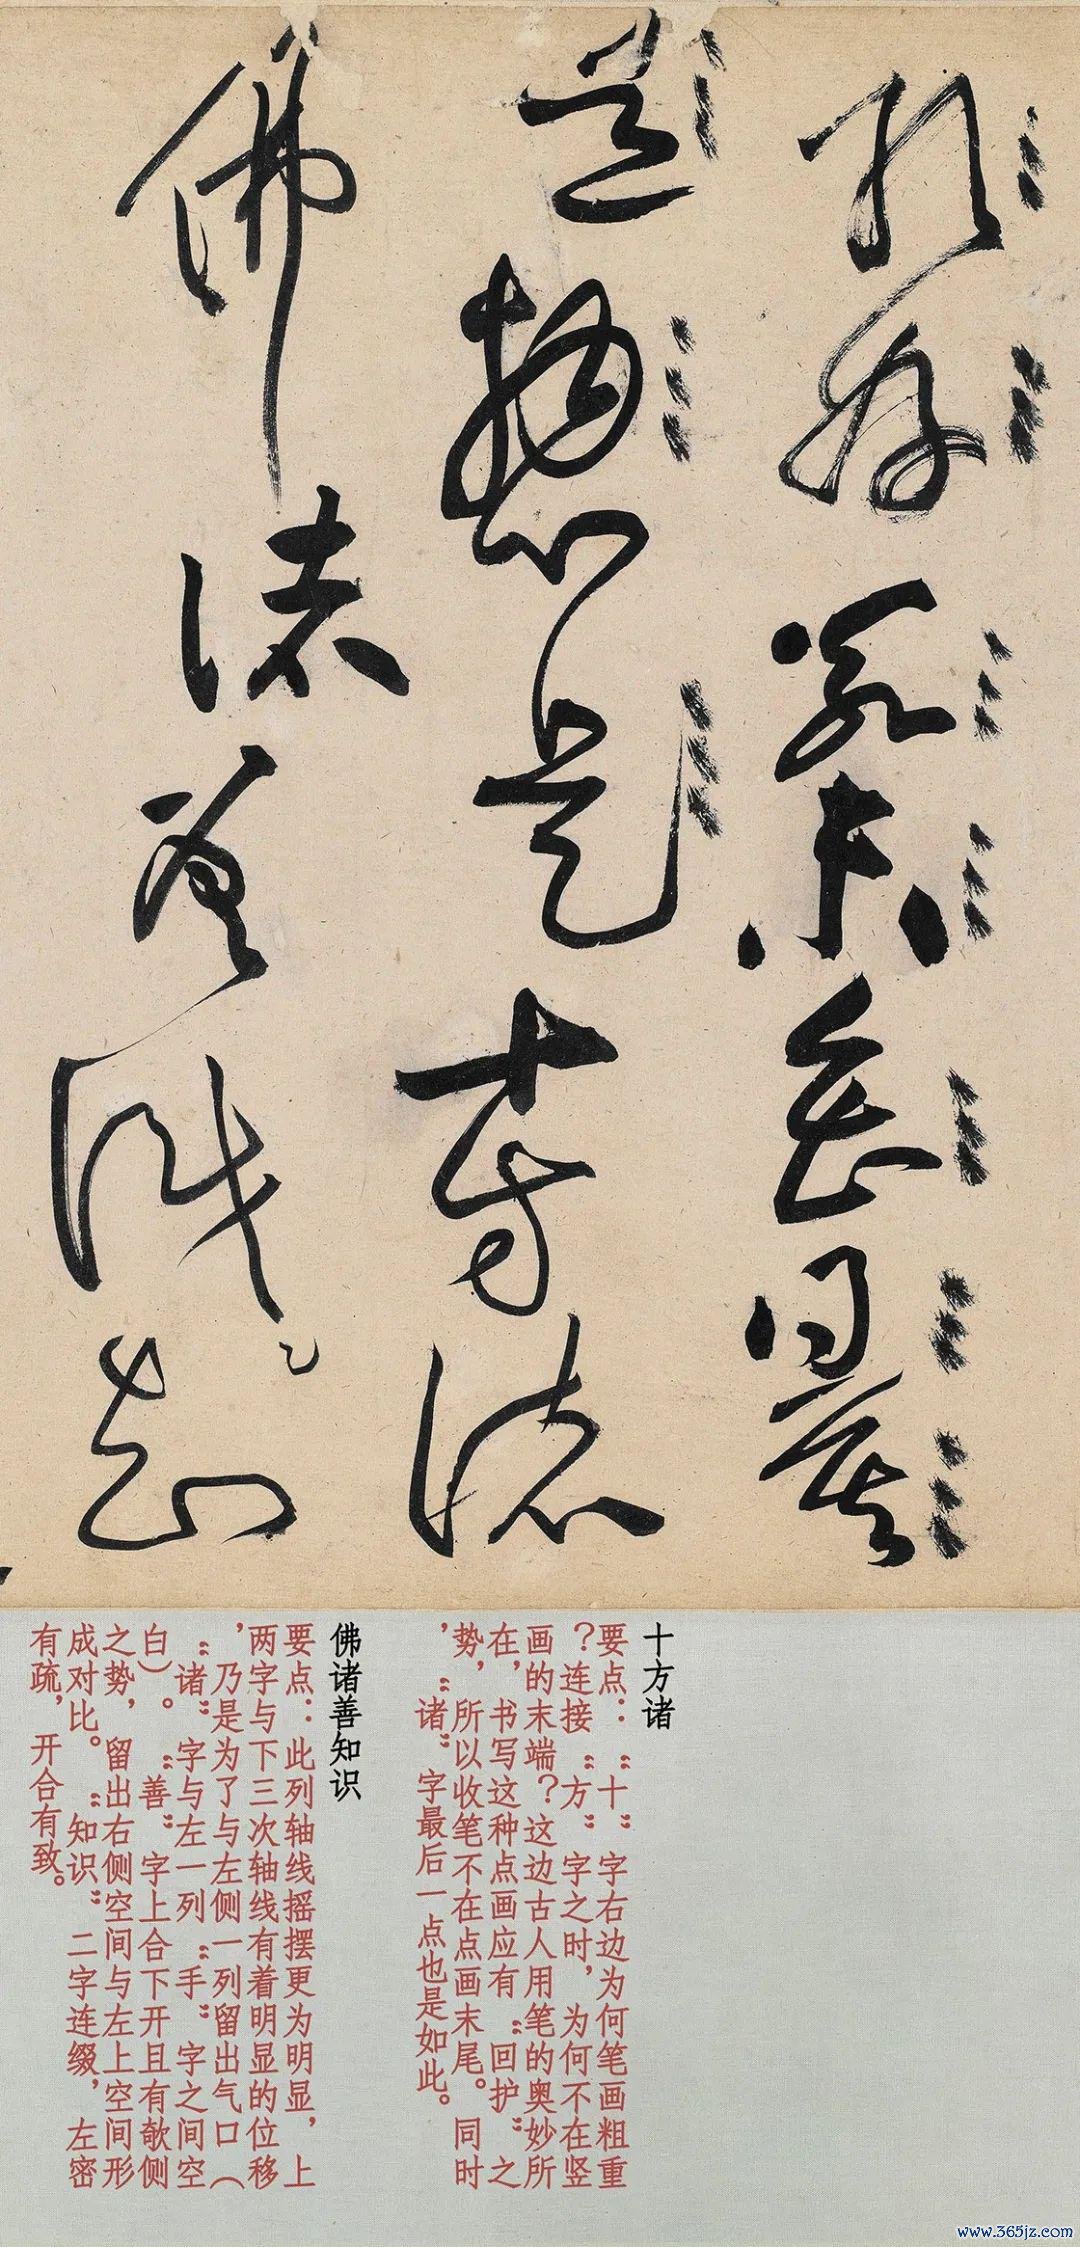 十方諸
佛諸善識知
十方诸
要点：“十”字右边为何笔画粗重
？连接“方”字之时，为何不在竖
画的末端？这边古人用笔的奥妙所
在，书写这种点画应有“回护”之
势，所以收笔不在点画末尾。同时
，“诸”字最后一点也是如此。
佛诸善知识
要点：此列轴线摇摆更为明显，上
两字与下三次轴线有着明显的位移
，乃是为了与左侧一列留出气口（
“诸”字与左一列“手”字之间空
白）。“善”字上合下开且有欹侧
之势，留出右侧空间与左上空间形
成对比。“知识”二字连缀，左密
有疏，开合有致。
www.365jz.com